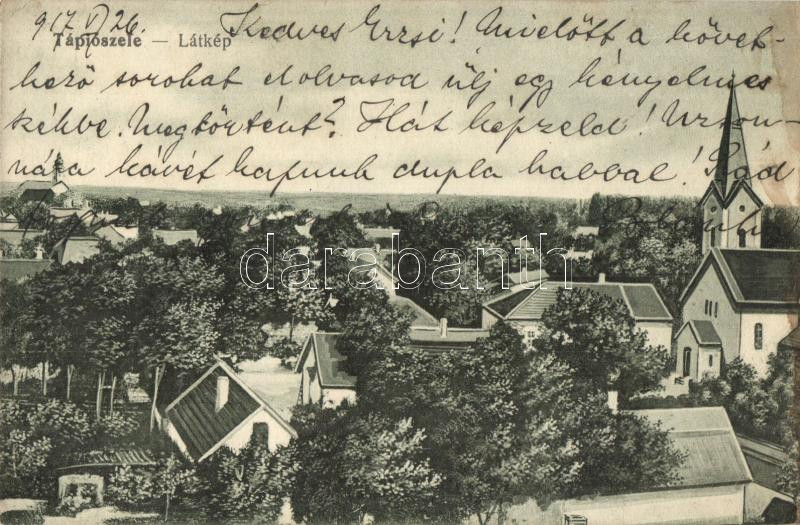 917 VI 26.
Tápiószele — Látkép
Kedves Erzsi! Mielőtt a követ-
kező sorokat elolvasod ülj egy kényelmes
székbe. Megtörtént? Hát képzeld! Uzson-
nára kávét kapunk dupla habbal! Pád
darabanth